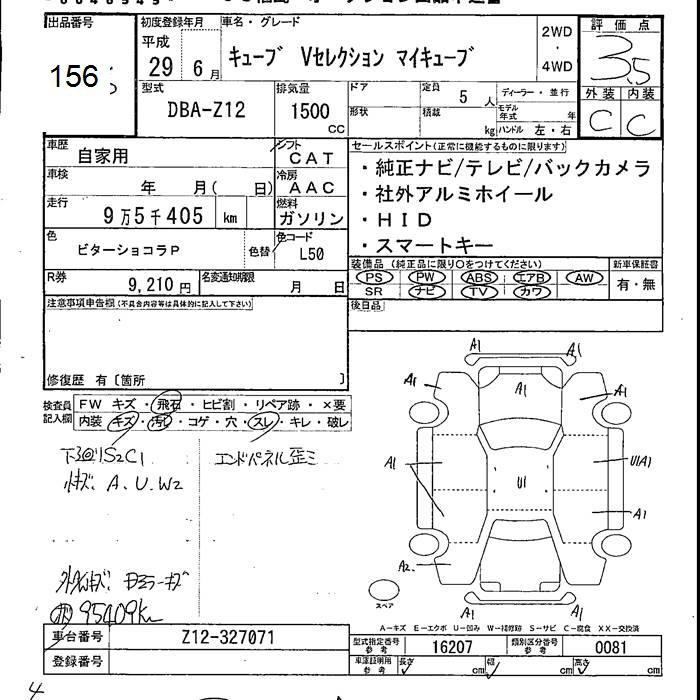 出品番号
156
初度登録年月
平成
29 6月
車名・グレード
キューブ Vセレクション マイキューブ
2WD
・
4WD
評価点
3.5
外装 内装
C C
型式
DBA-Z12
排気量
1500
CC
ドア
形状
定員 5 人
積載 kg
ディーラー・並行
モデル年式 年
ハンドル 左・右
車歴
自家用
シフト
CAT
車検
年 月( 日)
冷房
AAC
走行
9万5千405 km
燃料
ガソリン
色
ビターショコラP
色替
色コード
L50
R券
9,210円
名変通知期限
月 日
セールスポイント(正常に機能するものに限ります)
・純正ナビ/テレビ/バックカメラ
・社外アルミホイール
・HID
・スマートキー
装備品(純正品に限り〇をつけてください)
新車保証書
PS PW ABS エアB AW
SR ナビ TV カワ
有・無
後日品
注意事項申告欄(不具合内容等は具体的に記入して下さい)
修復歴 有〔箇所 〕
検査員
記入欄
FW キズ・飛石・ヒビ割・リペア跡・×要
内装 キズ・汚れ・コゲ・穴・スレ・キレ・破レ
下回りS2C1
エンドパネル歪ミ
小キズ、A、U、W2
95409km
A1
A1
A1
A1
A1
A1
U1
U1A1
A1
A2
A1
A1
スペア
A-キズ E-エクボ U-凹み W-補修跡 S-サビ C-腐食 XX-交換済
車台番号
Z12-327071
登録番号
型式指定番号
参考
16207
類別区分番号
参考
0081
車庫証明用
参考
長さ cm
幅 cm
高さ cm
4